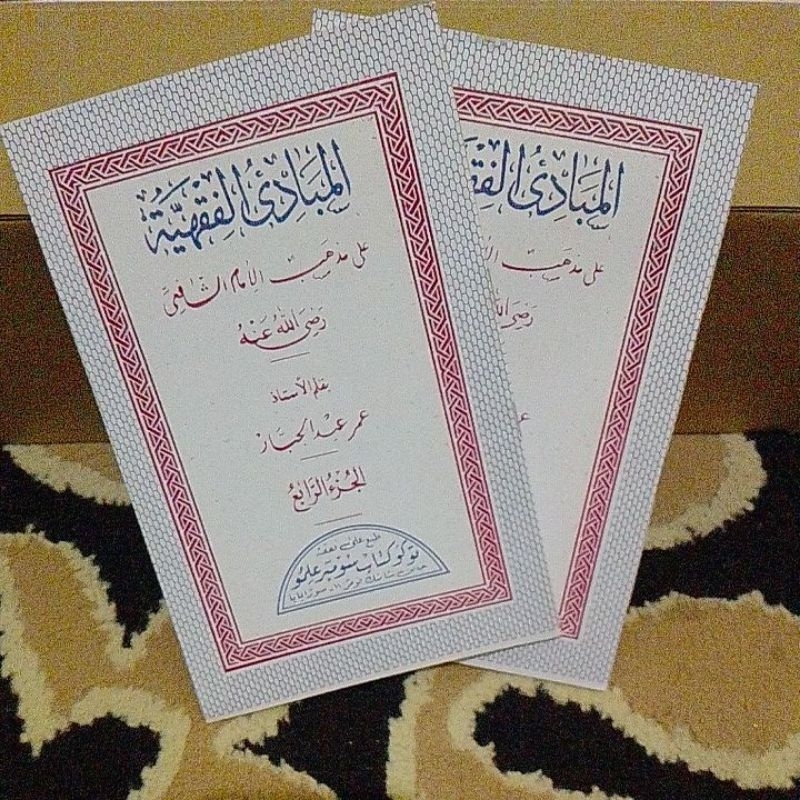 المَبَادِئُ الفِقْهِيَّة
على مذهب الإمام الشَّافِعِي
رَضِيَ اللهُ عَنْهُ
بقلم الأستاذ
عمر عبد الجبار
الجُزْءُ الرَّابِعُ
طبع على نفقة
توكو كتاب سومبر علمو
سورابايا
المَبَادِئُ
على مذهب
رَضِيَ